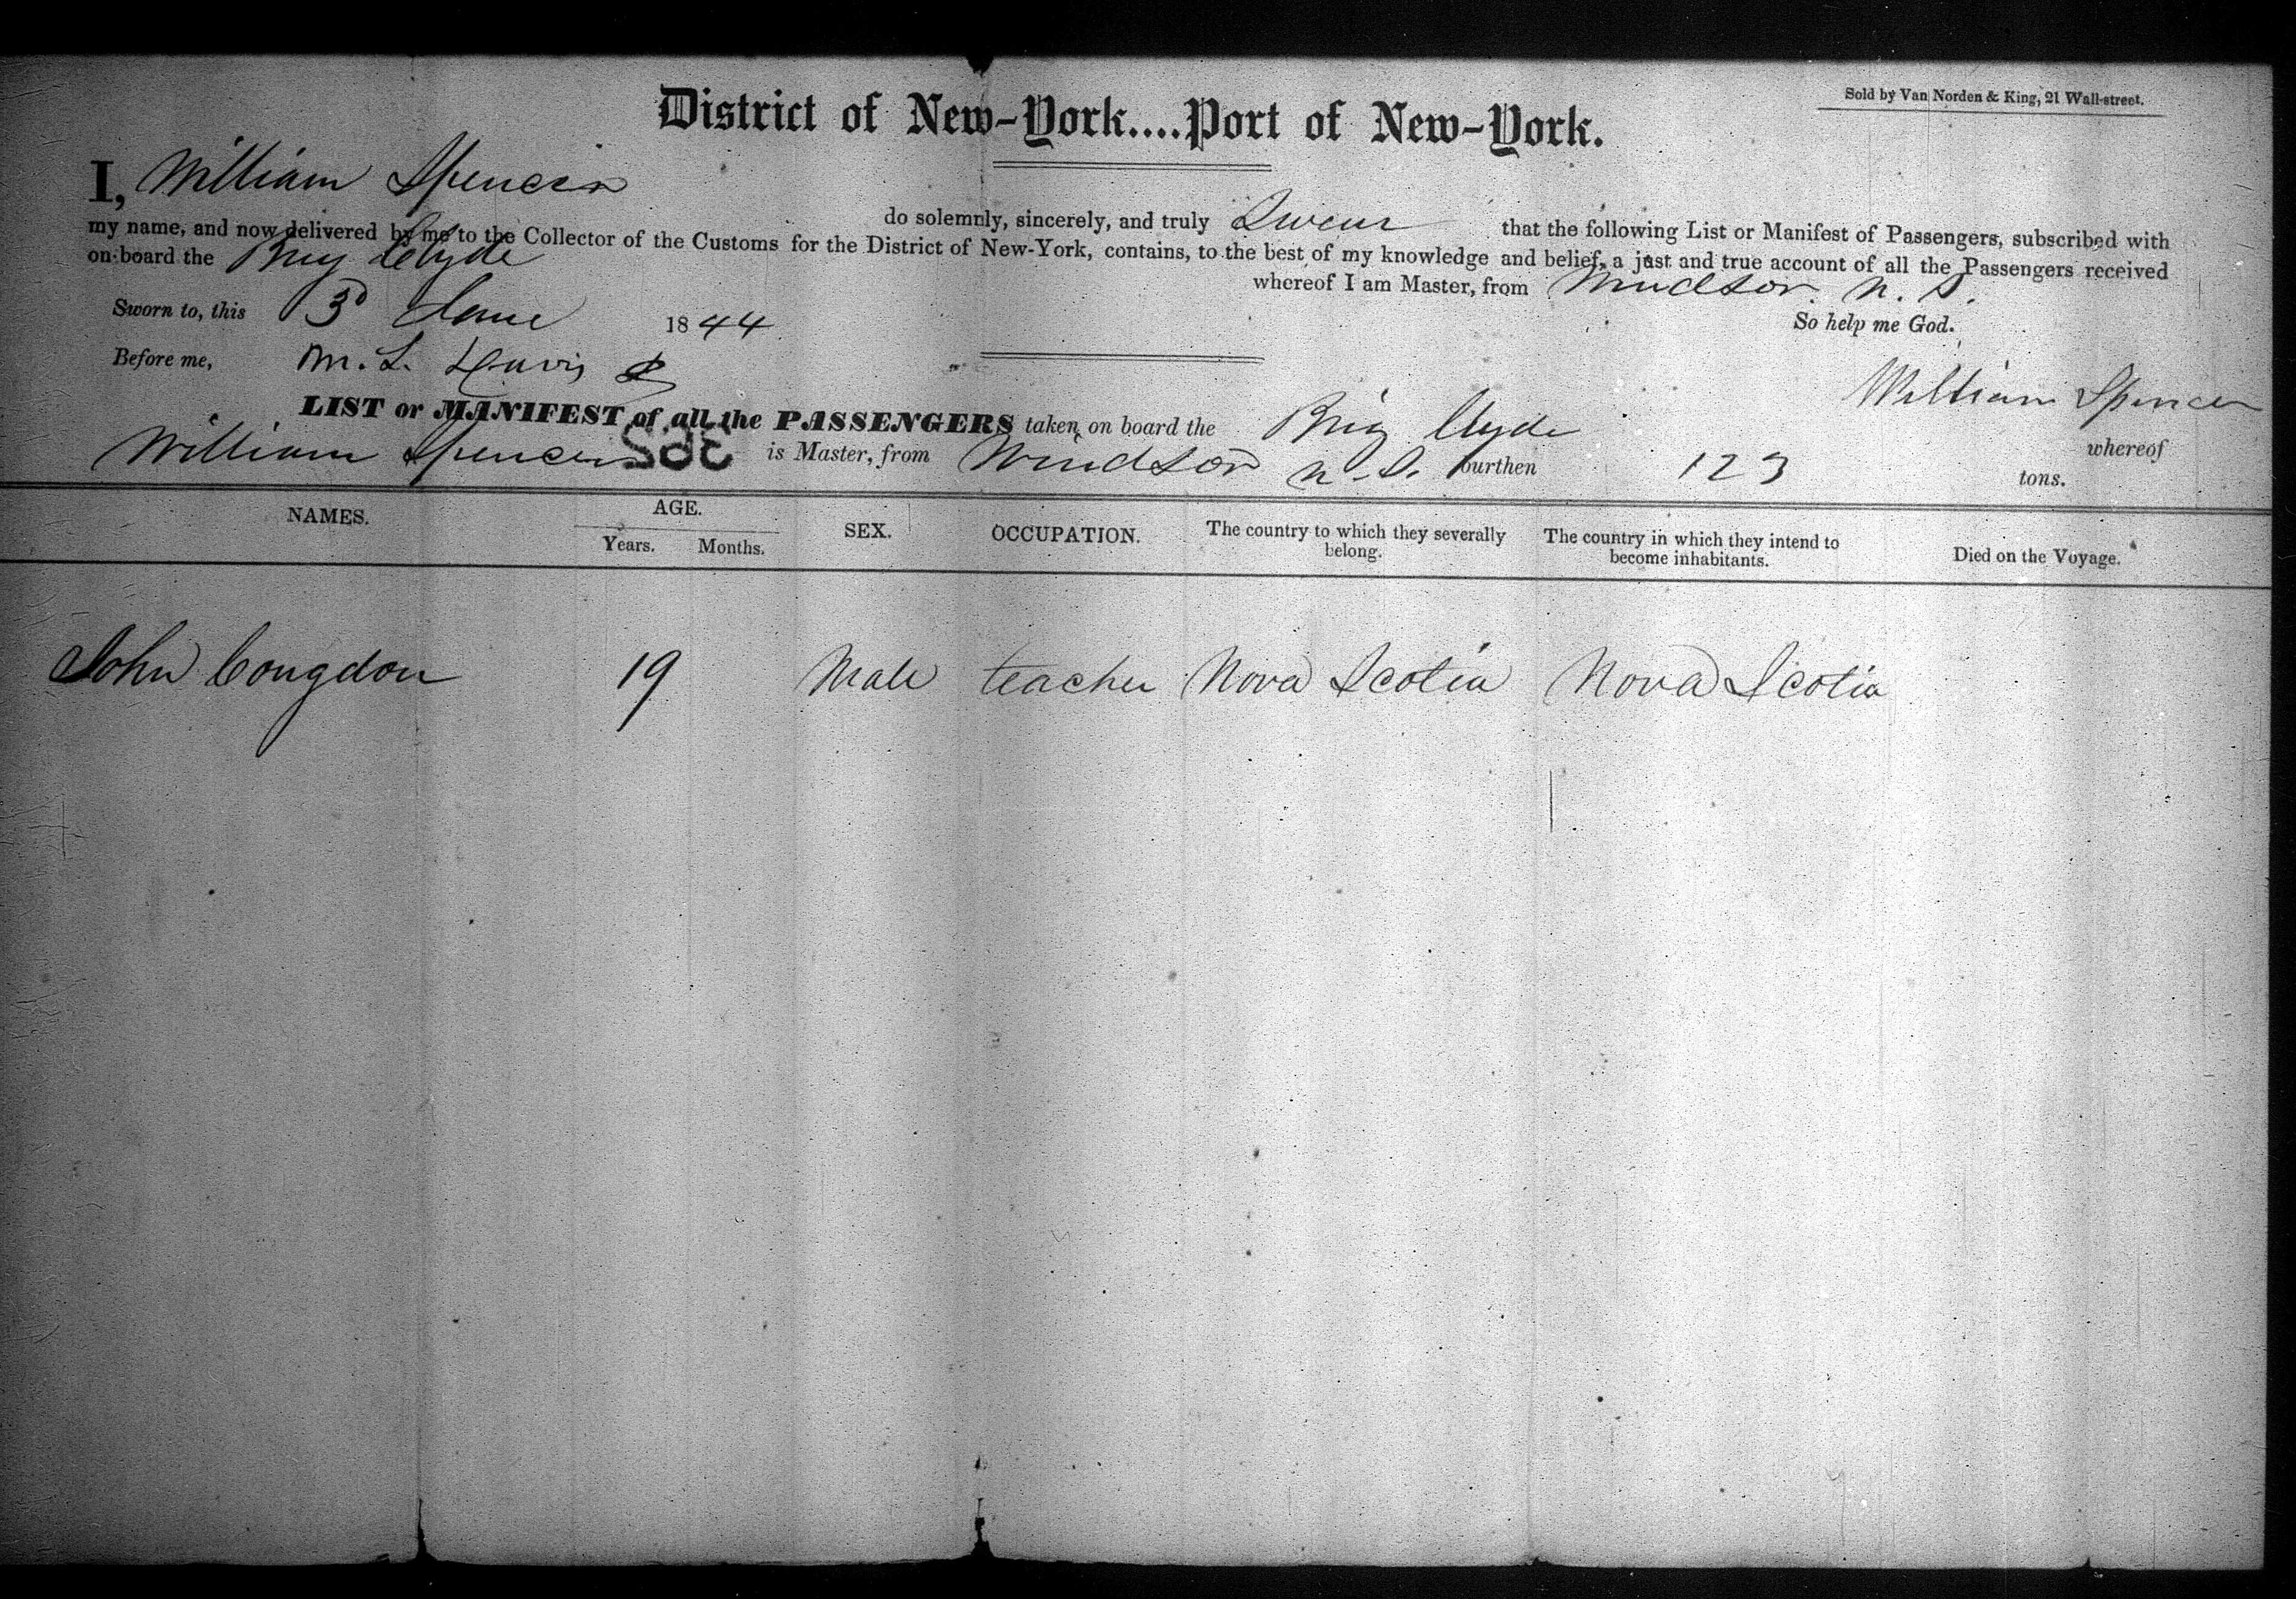 Sold by Van Norden & King, 21 Wall-street.
District of New-York....Port of New-York.
I, William Spencer do solemnly, sincerely, and truly Swear that the following List or Manifest of Passengers, subscribed with
my name, and now delivered by me to the Collector of the Customs for the District of New-York, contains, to the best of my knowledge and belief, a just and true account of all the Passengers received
on board the Brig Clyde whereof I am Master, from Windsor. N. S.
Sworn to, this 3d June 1844 So help me God.
Before me, M. L. Davis
William Spencer
LIST or MANIFEST of all the PASSENGERS taken on board the Brig Clyde whereof
William Spencer is Master, from Windsor N. S. burthen 123 tons.
NAMES. AGE. SEX. OCCUPATION. The country to which they severally belong. The country in which they intend to become inhabitants. Died on the Voyage.
Years. Months.
John Congdon 19 Male teacher Nova Scotia Nova Scotia